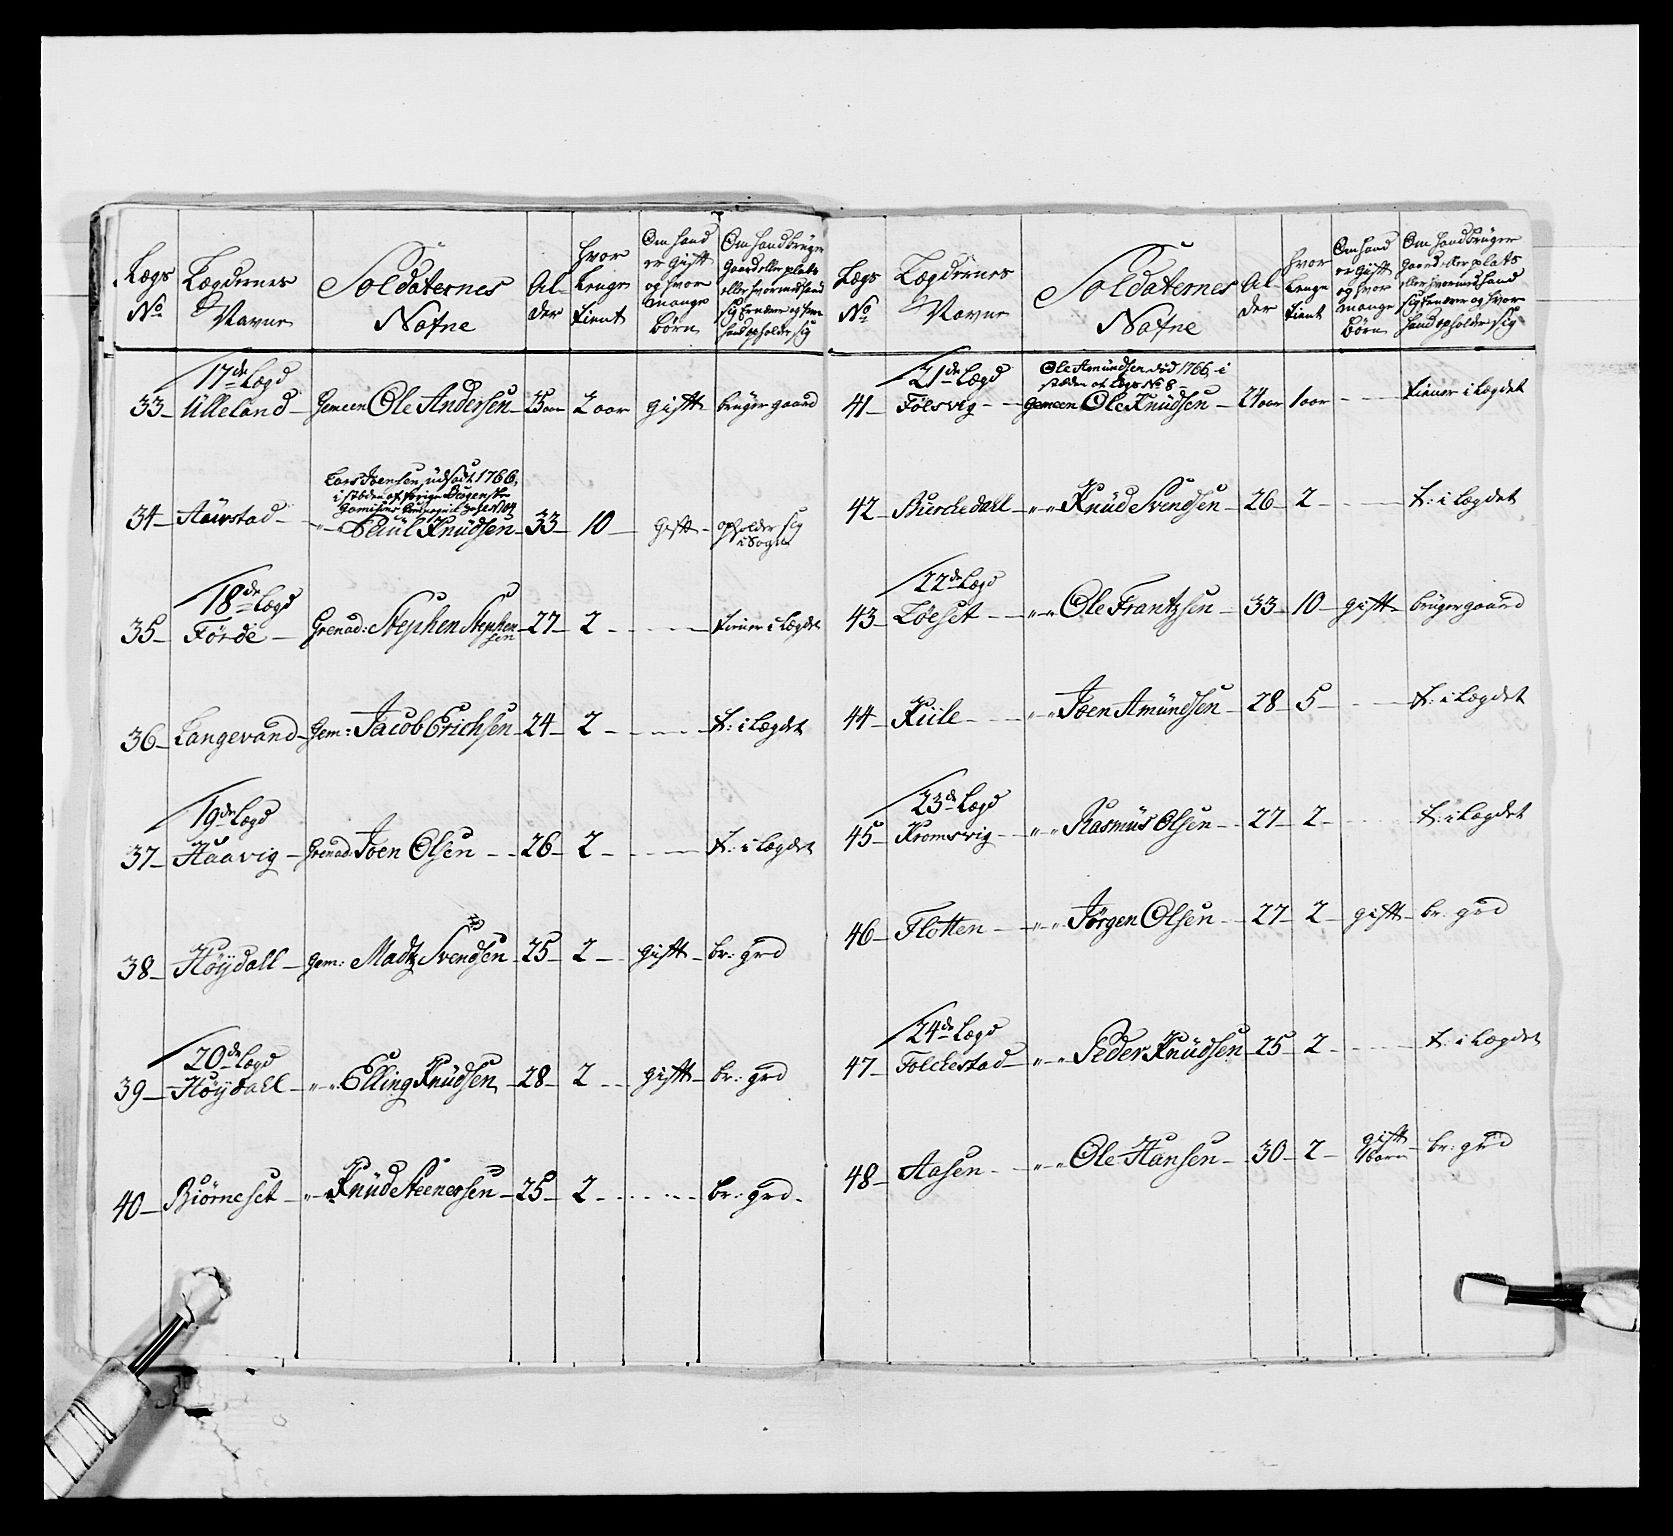 Lægs No | Lægdernes Navne | Soldaternes Nafne | Alder | hvor Lenge tient | Om hand er gift og hvor mange børn | Om hand brüger Gaard eller plats eller hvormed hand sig ernærer og hvor hand opholder sig
17de Lægd
33 Ulleland Gemeen Ole Andersen 25 aar 2 aar gift brüger gaard
Lars Joensen, üdsadt 1766,
i stæden af
34 Aürstad " " Paül Knüdsen 33 10 gift opholder sig i Sogn
18de Lægd
35 Förde Grenad: Stephen Stephensen 27 2 tiener i Lægdet
36 Langevand Gem: Jacob Erichsen 24 2 t: i Lægdet
19de Lægd
37 Haavig Grenad: Joen Olsen 26 2 t: i Lægdet
38 Höydall Gem: Madtz Svendsen 25 2 gift br: grd
20de Lægd
39 Höydall " " Elling Knüdsen 28 2 gift br: grd
40 Biörneset " " Knüd Steenersen 25 2 br: grd
Lægs No | Lægdernes Navne | Soldaternes Nafne | Alder | hvor Lenge tient | Om hand er gift og hvor mange børn | Om hand brüger Gaard eller plats eller hvormed hand sig ernærer og hvor hand opholder sig
21de Lægd
Ole Amündsen död 1766, i
stæden af Lægs No 8
41 Folsvig Gemeen Ole Knüdsen 24 aar 1 aar tiener i Lægdet
42 Burchedall " " Knüd Svendsen 26 2 t: i Lægdet
22de Lægd
43 Löeset " " Ole Frantzsen 33 10 gift brüger gaard
44 Kiile " " Joen Amündsen 28 5 t: i Lægdet
23de Lægd
45 Kromsvig " " Rasmüs Olsen 27 2 t: i Lægdet
46 Flotten " " Jörgen Olsen 27 2 gift br: grd
24de Lægd
47 Folchestad " " Peder Knüdsen 25 2 t: i Lægdet
48 Aasen " " Ole Hansen 30 2 gift 1 barn br: grd